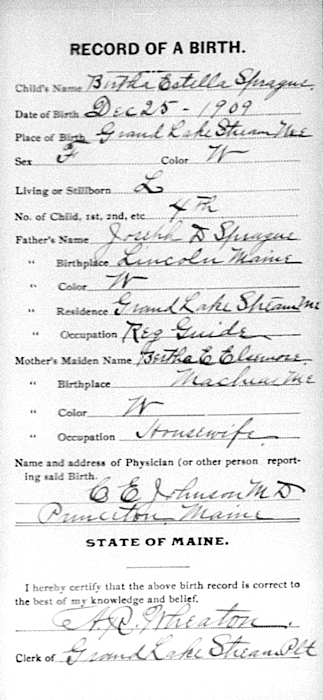 RECORD OF A BIRTH.
Child's Name Bertha Estella Sprague.
Date of Birth Dec 25 - 1909
Place of Birth Grand Lake Stream Me
Sex F Color W
Living or Stillborn L
No. of Child, 1st, 2nd, etc 4th
Father's Name Joseph D Sprague
" Birthplace Lincoln Maine
" Color W
" Residence Grand Lake Stream Me
" Occupation Reg Guide
Mother's Maiden Name Bertha E Elsemore
" Birthplace Machias Me
" Color W
" Occupation Housewife
Name and address of Physician (or other person report-
ing said Birth.
C E Johnson M D
Princeton Maine
STATE OF MAINE.
I hereby certify that the above birth record is correct to
the best of my knowledge and belief.
A. R. Wheaton.
Clerk of Grand Lake Stream Plt